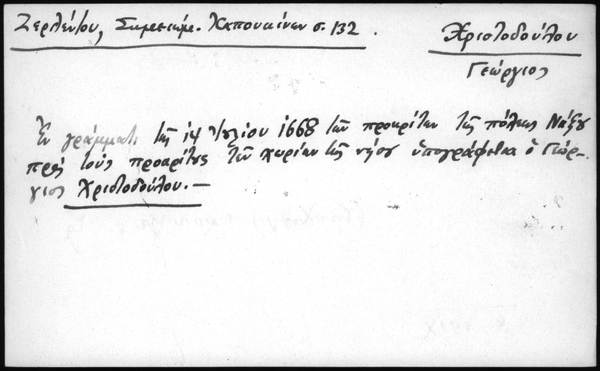 Ζερλέντου, Σημειώμ. Καπουκίνων σ. 132
Χριστοδούλου
Γεώργιος
Ἐν γράμματι τῆς 14 Ἰουλίου 1668 τῶν προκρίτων τῆς πόλεως Νάξου
πρὸς τοὺς προκρίτους τῶν χωρίων τῆς νήσου ὑπογράφεται ὁ Γεώρ-
γιος Χριστοδούλου. —